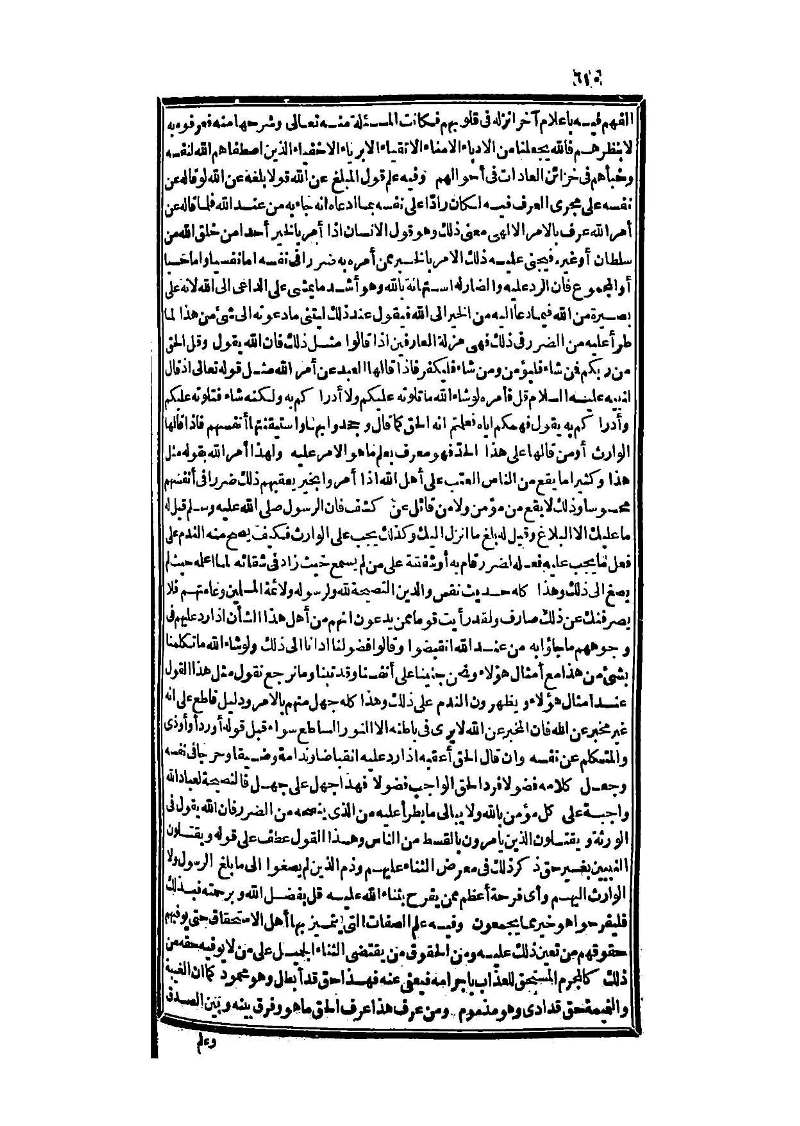 ٦١٥
الفهم فيه باعلام آخر انزله فى قلوبهم فكانت المسئلة منه تعالى وشرحها منه فعرفوه به
لا بنظرهم فالله يجعلنا من الادباء الامناء الاتقياء الابرياء الاخفياء الذين اصطفاهم الله لنفسه
وخبأهم فى خزائن العادات فى أحوالهم وفيه علم قول المبلغ عن الله قولا بلغه عن الله لو قاله عن
نفسه على مجرى العرف فيه لكان رادا على نفسه بما ادعاه انه جاء به من عند الله فلما قاله عن
أمر الله عرف بالامر الالهى معنى ذلك وهو قول الانسان اذا أمر بالخير أحدا من خلق الله من
سلطان أو غيره فيجنى عليه ذلك الامر بالخير ممن أمره به ضررا فى نفسه اما نفسيا واما حسيا
أو المجموع فان الرد عليه والضار له استهانة بالله وهو أشد ما يمشى على الداعى الى الله لانه على
بصيرة من الله فيما دعا اليه من الخير الى الله فيقول عند ذلك ليتنى ما دعوته الى شئ من هذا لما
طرأ عليه من الضرر فى ذلك فهى مزلة العارفين اذا قالوا مثل ذلك فان الله يقول وقل الحق
من ربكم فمن شاء فليؤمن ومن شاء فليكفر فاذا قالها العبد عن أمر الله مثل قوله تعالى اذ قال
لنبيه عليه السلام قل فأمره لو شاء الله ما تلوته عليكم ولا أدراكم به ولكنه شاء فتلوته عليكم
وأدراكم به يقول فهمكم اياه فعلمتم انه الحق كما قال وجحدوا بها واستيقنتها أنفسهم فاذا قالها
الوارث أو من قالها على هذا الحد فهو معرف بعلم ما هو الامر عليه ولهذا أمر الله بقوله مثل
هذا وكثيرا ما يقع من الناس العتب على أهل الله اذا أمروا بخير يعقبهم ذلك ضررا فى أنفسهم
محسوسا وذلك لا يقع من مؤمن ولا من قائل عن كشف فان الرسول صلى الله عليه وسلم قيل له
ما عليك الا البلاغ وقيل له بلغ ما انزل اليك وكذلك يجب على الوارث فكيف يصح منه الندم على
فعل ما يجب عليه فعله لضرر قام به أو شفقة على من لم يسمع حيث زاد فى شقائه لما أعله حيث لم
يصغ الى ذلك وهذا كله حديث نفس والدين النصيحة لله ولرسوله ولائمة المسلمين وعامتهم فلا
يصرفنك عن ذلك صارف ولقد رأيت قوما ممن يدعون انهم من أهل هذا الشأن اذا رد عليهم فى
وجوههم ما جاؤا به من عند الله انقبضوا وقالوا فضولنا ادانا الى ذلك ولو شاء الله ما تكلمنا
بشئ من هذا مع أمثال هؤلاء ونحن جنينا على أنفسنا وقد تبنا وما نرجع نقول مثل هذا القول
عند أمثال هؤلاء ويظهرون الندم على ذلك وهذا كله جهل منهم بالامر ودليل قاطع على انه
غير مخبر عن الله فان المخبر عن الله لا يرى فى باطنه الا النور الساطع سواء قبل قوله أو رد أو أوذى
والمتكلم عن نفسه وان قال الحق أعقبه اذا رد عليه انقباضا وندامة وضيقا وحرجا فى نفسه
وجعل كلامه فضولا فرد الحق الواجب فضولا فهذا جهل على جهل فالنصيحة لعباد الله
واجبة على كل مؤمن بالله ولا يبالى ما يطرأ عليه من الذى ينصحه من الضرر فان الله يقول فى
الورثة ويقتلون الذين يأمرون بالقسط من الناس وهذا القول عطف على قوله ويقتلون
النبيين بغير حق ذكر ذلك فى معرض الثناء عليهم وذم الذين لم يصغوا الى ما بلغ الرسول ولا
الوارث اليهم وأى فرحة أعظم ممن يفرح بثناء الله عليه قل بفضل الله وبرحمته فبذلك
فليفرحوا هو خير مما يجمعون وفيه علم الصفات التى يتميز بها أهل الاستحقاق حتى يوفيهم
حقوقهم من تعين ذلك عليه ومن الحقوق من يقتضى الثناء الجميل على من لا يوفيه حقه من
ذلك كالمجرم المستحق للعذاب باجرامه فيعفى عنه فهذا حق قد أبطل وهو محمود كما ان الغيبة
والنميمة حق قد ادى وهو مذموم ومن عرف هذا عرف الحق ما هو وفرق بينه وبين الصدق
وعلم